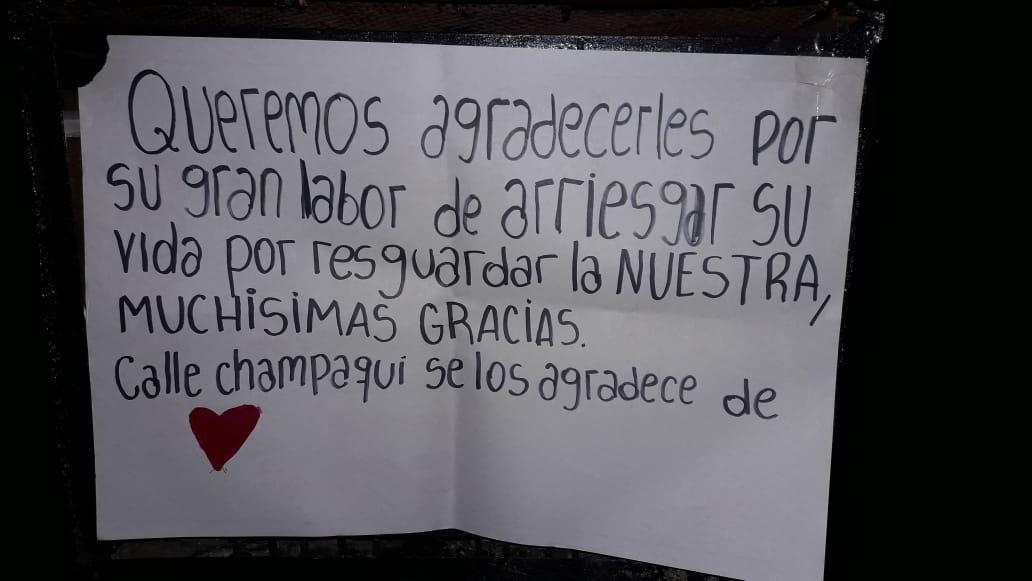 Queremos agradecerles por
su gran labor de arriesgar su
vida por resguardar la NUESTRA,
MUCHiSiMAS GRACiAS.
Calle champaqui se los agradece de